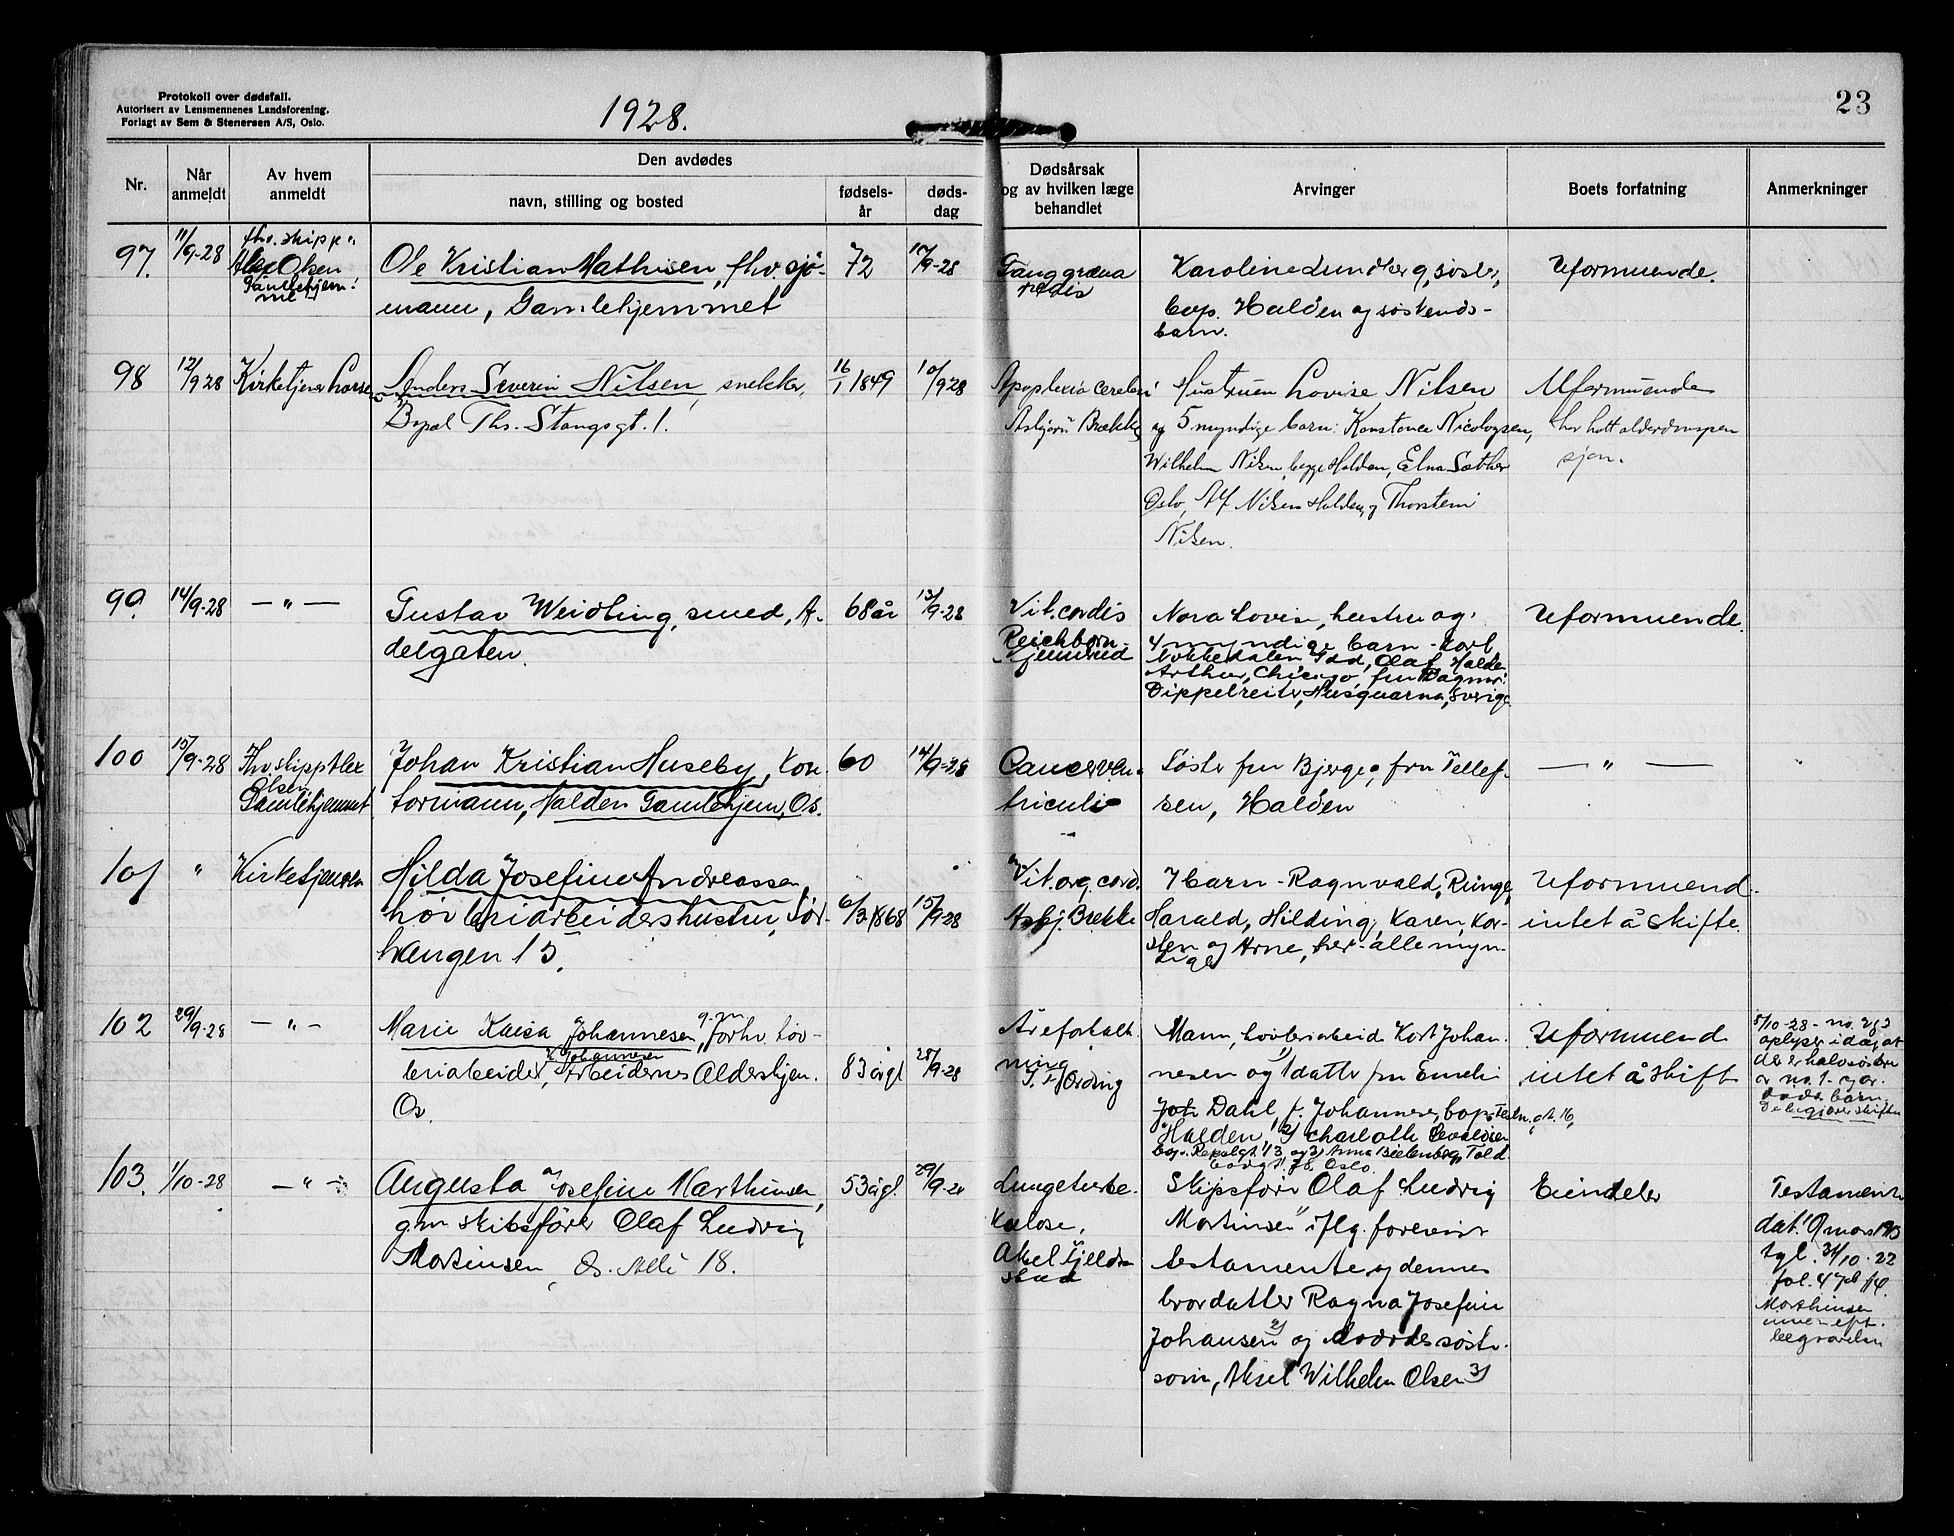 Protokoll over dødsfall.
Autorisert av Lensmennenes Landsforening.
Forlagt av Sem & Stenersen A/S, Oslo.
1928.
23
Nr.
Når anmeldt
Av hvem anmeldt
Den avdødes
navn, stilling og bosted
fødsels-år
døds-dag
Dødsårsak og av hvilken læge behandlet
Arvinger
Boets forfatning
Anmerkninger
97.
11/9-28
fhv. skipp.
Alex Olsen
Gamlehjem-
me
Ole Kristian Mathisen, fhv. sjø-
mann, Gamlehjemmet
72
10/9-28
Ganggræna
pedis
Karoline Lundberg, søster,
bop. Halden og søskends-
barn.
Uformuende.
98
12/9 28
Kirketjener Larsen
Anders Severin Nilsen, snekker,
Bopæl Ths. Stangsgt. 1.
16/1 1849
10/9 28
Apoplexia cerebri
Asbjørn Brække
Hustruen Lovise Nilsen
og 5 myndige barn: Konstance Nicolaysen,
Wilhelm Nilsen, begge Halden, Elna Sæther
Oslo, Alf Nilsen Halden og Thorstein
Nilsen.
Uformuende
har hatt alderdomspen
sjon.
99.
14/9-28
— " —
Gustav Weidling, smed, A-
delgaten.
68 år
13/9-28
Vit. cordis
Reichborn-
Kjennerud
Nora Lovise, hustru og
4 myndige barn - Karl
Tokkedalen Idd, Olaf Halden
Arthur, Chicago fru Dagmar
Dippelreiter, Husquarna, Sverige
Uformuende.
100
15/9-28
Fhv skipp Alex
Olsen,
Gamlehjemmet
Johan Kristian Huseby, Kon-
tormann, Halden Gamlehjem, Os.
60
14/9-28
Cancer ven-
triculi
Søster fru Bjerge, fru Tellef-
sen, Halden
— " —
101
"
Kirketjeneren
Hilda Josefine Andreassen,
høvleriarbeidershustru, Sør-
haugen 15.
6/3 1868
15/9-28
Vit. org. cord.
Asbj. Brekke
Barn - Ragnvald, Ringe,
Harald, Hilding, Karen, Kar-
sten og Arne, her - alle myn-
dige
Uformuend.
intet å skifte.
102
29/9-28
— " —
Marie Kaisa Johannesen, g. m. forhv. høv-
leriarbeider, K. Johannesen
Arbeidernes Aldershjem.
Os.
83 årgl
28/9-28
Åreforkalk-
ning
Ording
Mann, høvleriarbeid Kort Johan-
nesen og 1) datter fru Emelie
Dahl, f. Johannesen, bop.
Halden, 2) Charlotte
bop. Repslgt. 13 og 3) Anna Bielenberg, Told
bodgt. 78, Oslo.
Uformuend
intet å skift
5/10-28 - no. 2 & 3
oplyser idag at
de er halvsøstre
av no. 1 - og av-
dødes barn.
De begjærer skiften
103.
1/10-28
— " —
Augusta Josefine Marthinsen,
g.m. skibsfører Olaf Ludvig
Martinsen, Os. Allé 18.
53 årgl.
29/9-28
Lungetuberk-
kulose,
Aksel Fjeld-
stad
Skipsfører Olaf Ludvig
Martinsen 1) iflg. forevist
testamente og dennes
brordatter Ragna Josefine
Johansen 2) og avdødes søster-
sønn, Aksel Wilhelm Olsen 3)
Eiendeler
Testament
dat. 9 mars
tgl. 31/10-22
fol.
Marthinsen
begravelsen